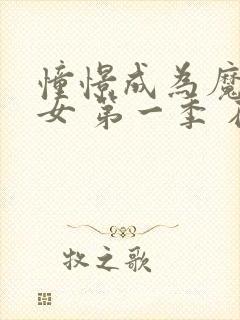 憧憬成為魔
女 第一季 
牧之歌